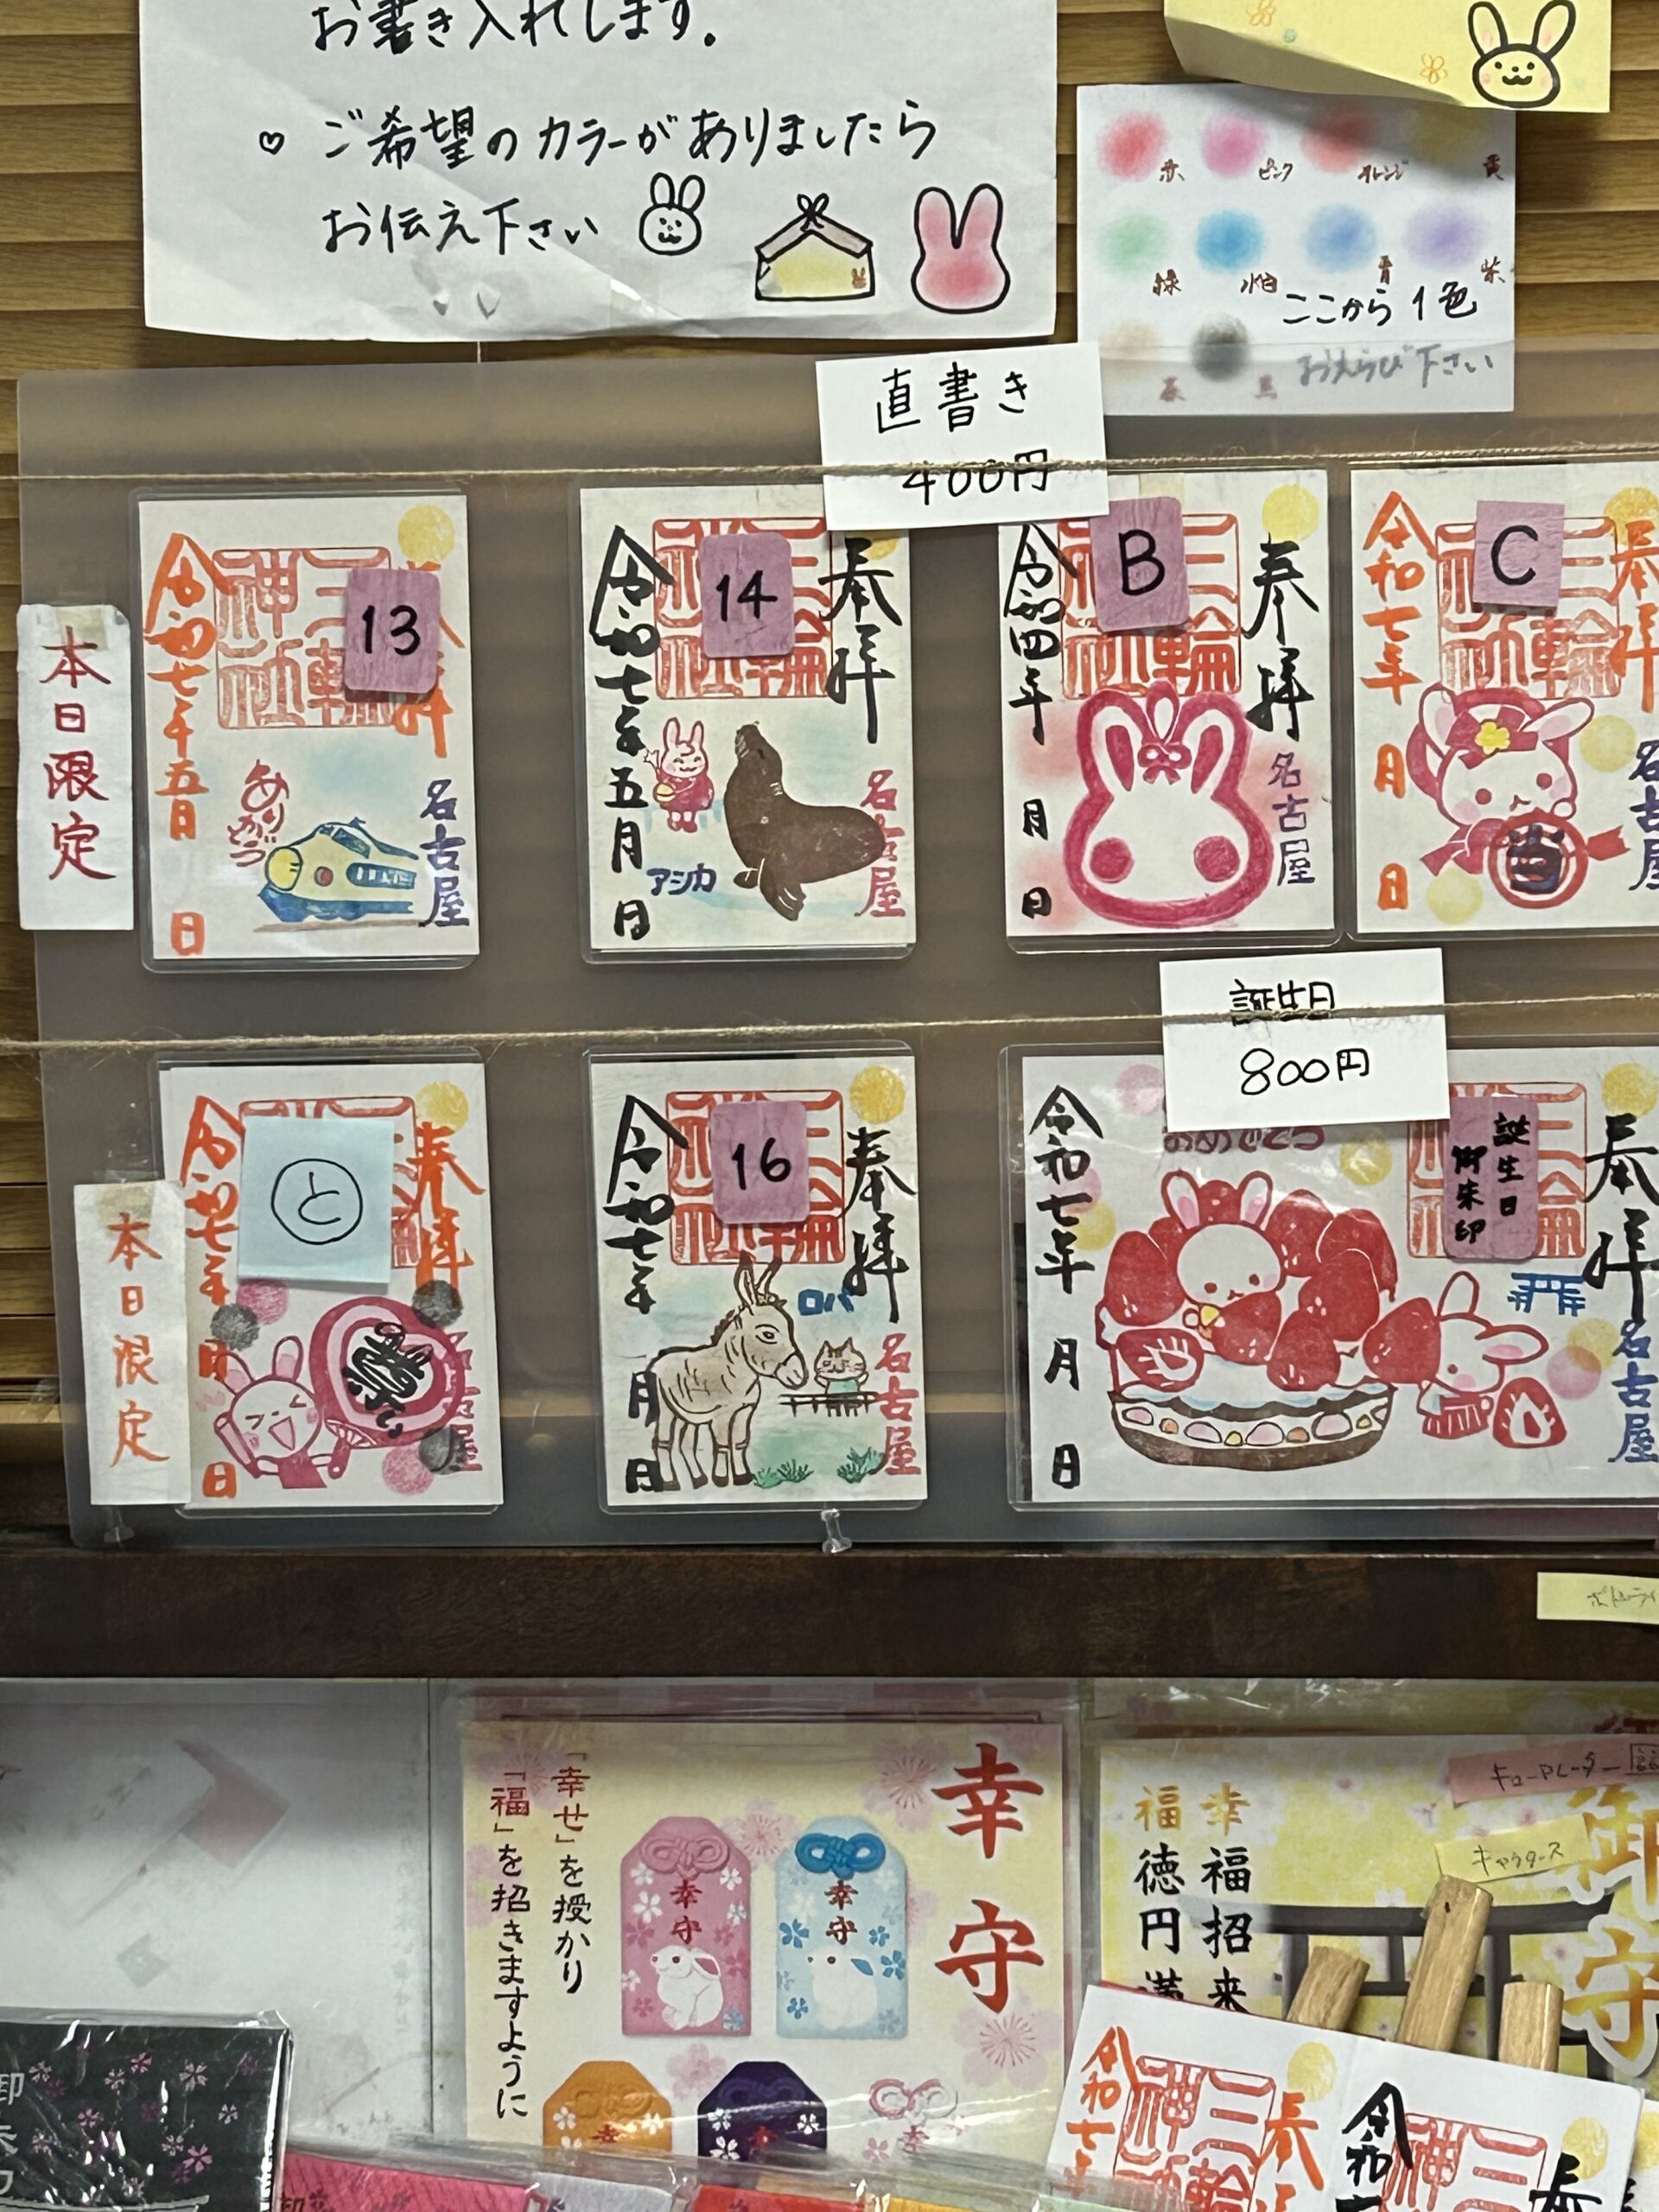 お書き入れします。
♡ ご希望のカラーがありましたら
お伝え下さい
赤
ピンク
オレンジ
黄
緑
水色
青
紫
茶
黒
ここから1色
おえらび下さい
直書き
400円
本日限定
令和七年五月
日
三輪神社
13
ありがとう
名古屋
奉拝
14
令和七年五月
日
アシカ
名古屋
奉拝
B
令和四年
月
日
名古屋
奉拝
C
令和七年
月
日
当
名古屋
誕生日
800円
本日限定
奉拝
と
令和七年
月
日
奉拝
16
令和七年
月
日
ロバ
名古屋
奉拝
誕生日
御朱印
おめでとう
令和七年
月
日
名古屋
幸守
「幸せ」を授かり
「福」を招きますように
幸守
幸守
幸福招来
福徳円満
御守
キーホルダー
キャラクターズ
令和七
三輪
奉
令和
三
神